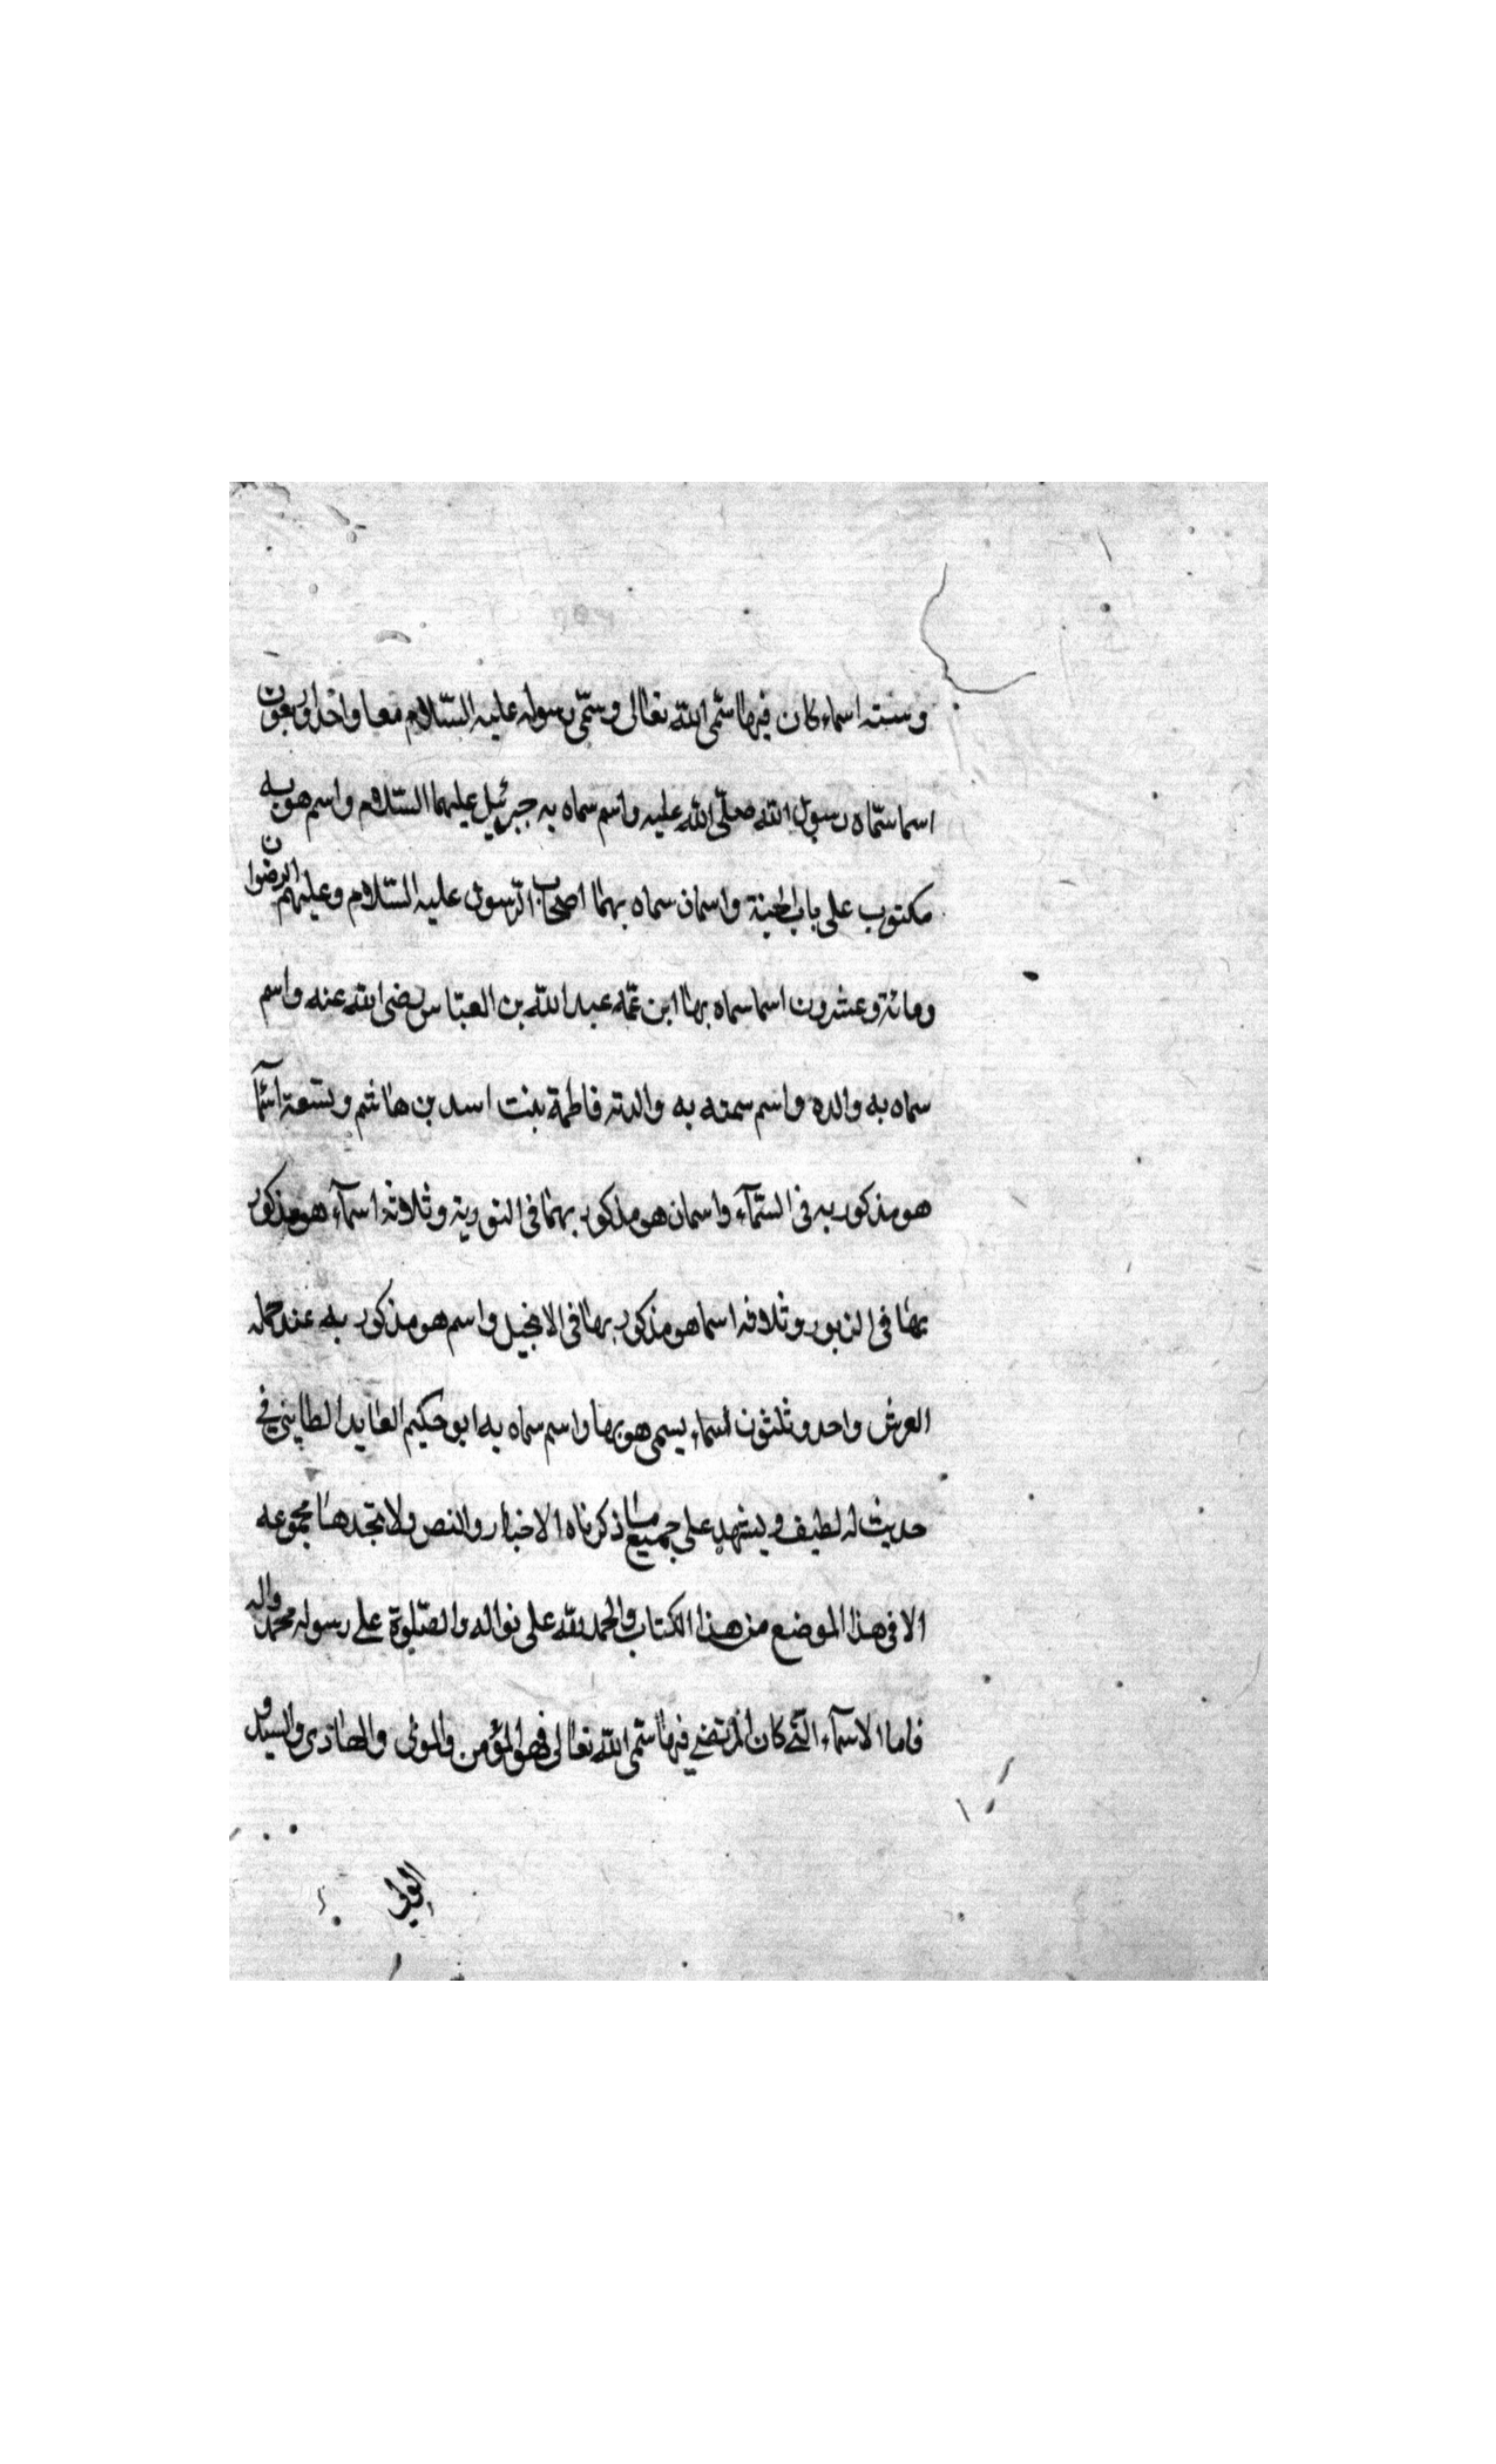 وستة اسماء كان فيها سمّى الله تعالى وسمّى رسوله عليه السّلام معا واحد واربعون
اسما سمّاه رسول الله صلّى الله عليه واسم سماه به جبرئيل عليهما السّلام واسم هو به
مكتوب على باب الجنة واسمان سماه بهما اصحاب الرّسول عليه السّلام وعليهم الرضوان
ومائة وعشرون اسما سماه بها ابن عمّه عبد الله بن العبّاس رضى الله عنه واسم
سماه به والده واسم سمته به والدته فاطمة بنت اسد بن هاشم وتسعة اسما
هو مذكور به فى السّمآء واسمان هو مذكور بهما فى التورية وثلاثة اسمآء هو مذكور
بها فى الزبور وثلاثة اسما هو مذكور بها فى الانجيل واسم هو مذكور به عند حملة
العرش واحد وثلثون اسماء يسمى هو بها واسم سماه به ابو حكيم العابد الطاينى فى
حديث له لطيف ويشهد على جميع ما ذكرناه الاخبار والنص ولا تجدها مجموعه
الا فى هذا الموضع من هذا الكتاب والحمد لله على نواله والصّلوة على رسوله محمد واله
فاما الاسمآء الّتى كان المرتضى فيها سمّى الله تعالى فهو المؤمن والموفى والهاذى والسيد و
الولى